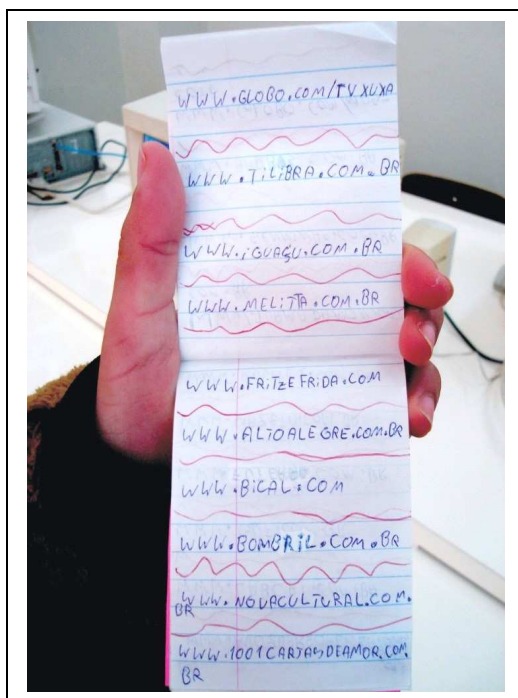 WWW.GLOBO.COM/TVXUXA
WWW.TiLiBRA.COM.BR
WWW.iGUAÇU.COM.BR
WWW.MELiTTA.COM.BR
WWW.FRiTZEFRiDA.COM
WWW.ALTOALEGRE.COM.BR
WWW.BiCAL.COM
WWW.BOMBRiL.COM.BR
WWW.NOVACULTURAL.COM.
BR
WWW.1001CARTASDEAMOR.COM.
BR